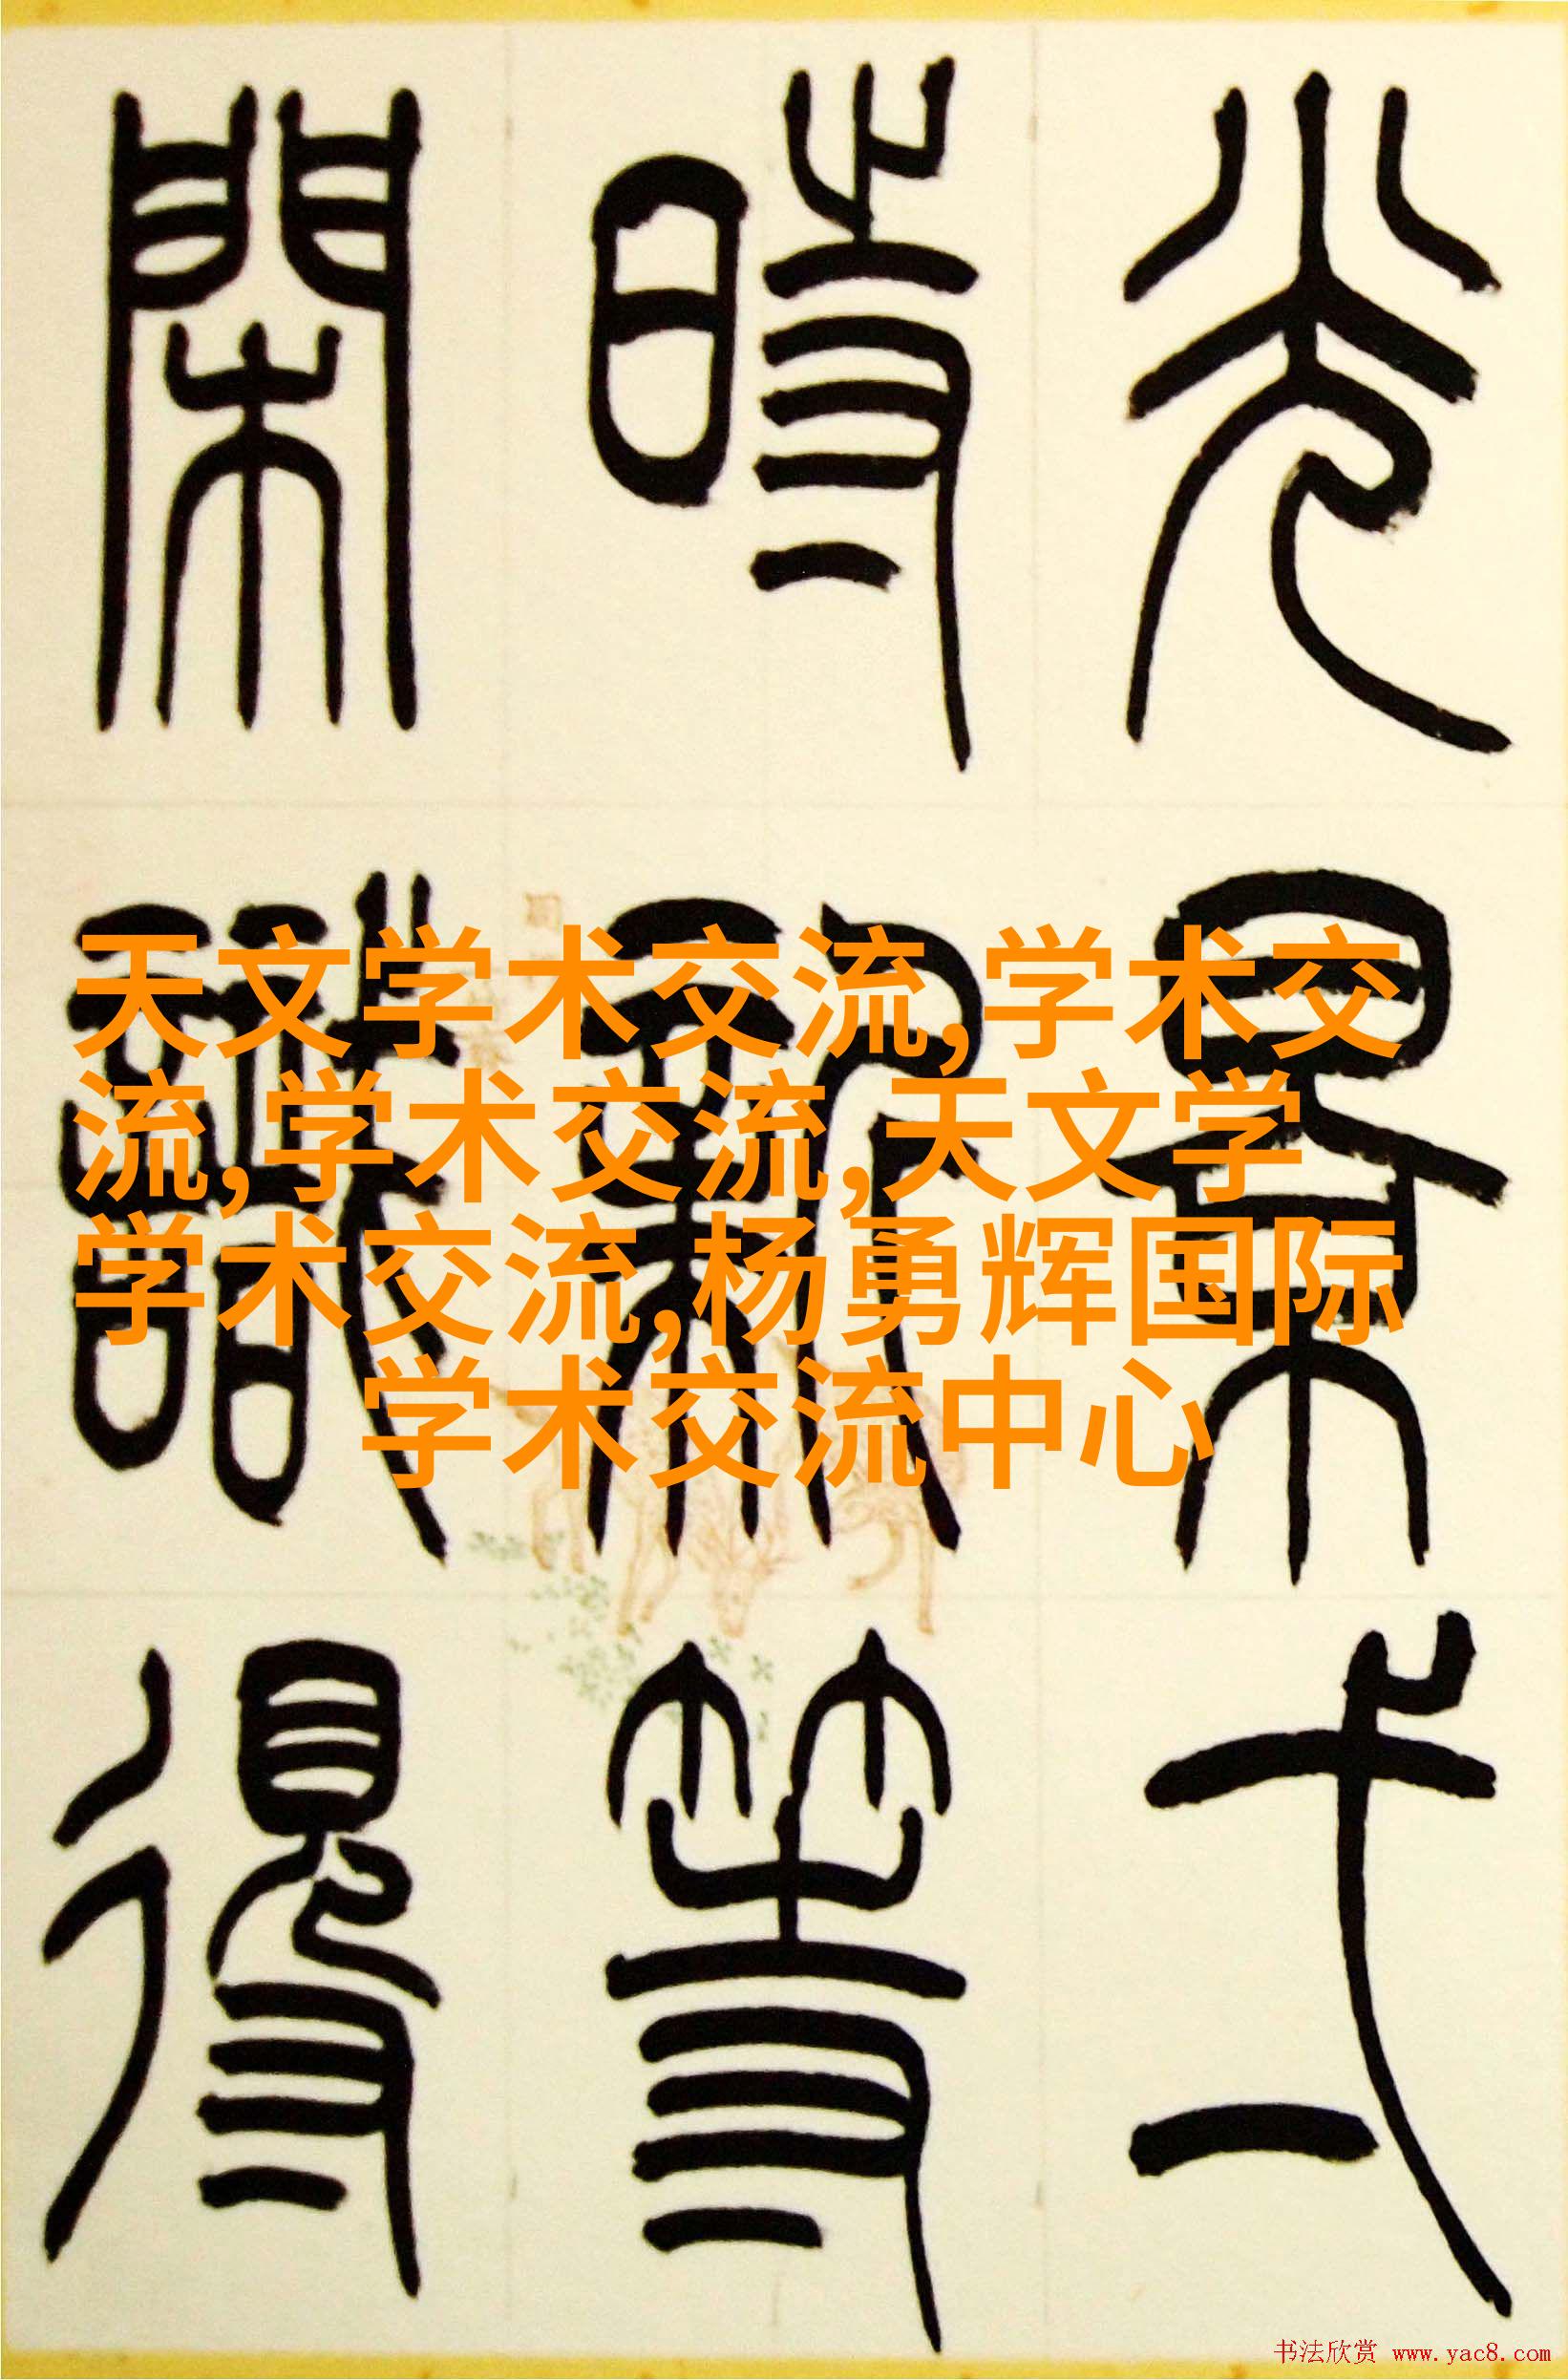 光景弌
時新等
閑識得
天文学术交流,学术交
流,学术交流,天文学
学术交流,杨勇辉国际
学术交流中心
书法欣赏 www.yac8.com